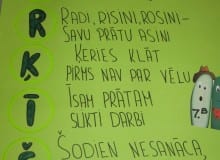 R
RADI, RISINI, ROSINI-
SAVU PRĀTU ASINI
K
ĶERIES KLĀT
PIRMS NAV PAR VĒLU
Ī
ĪSAM PRĀTAM
SLIKTI DARBI
7.B
Š
ŠODIEN NESANĀCA,